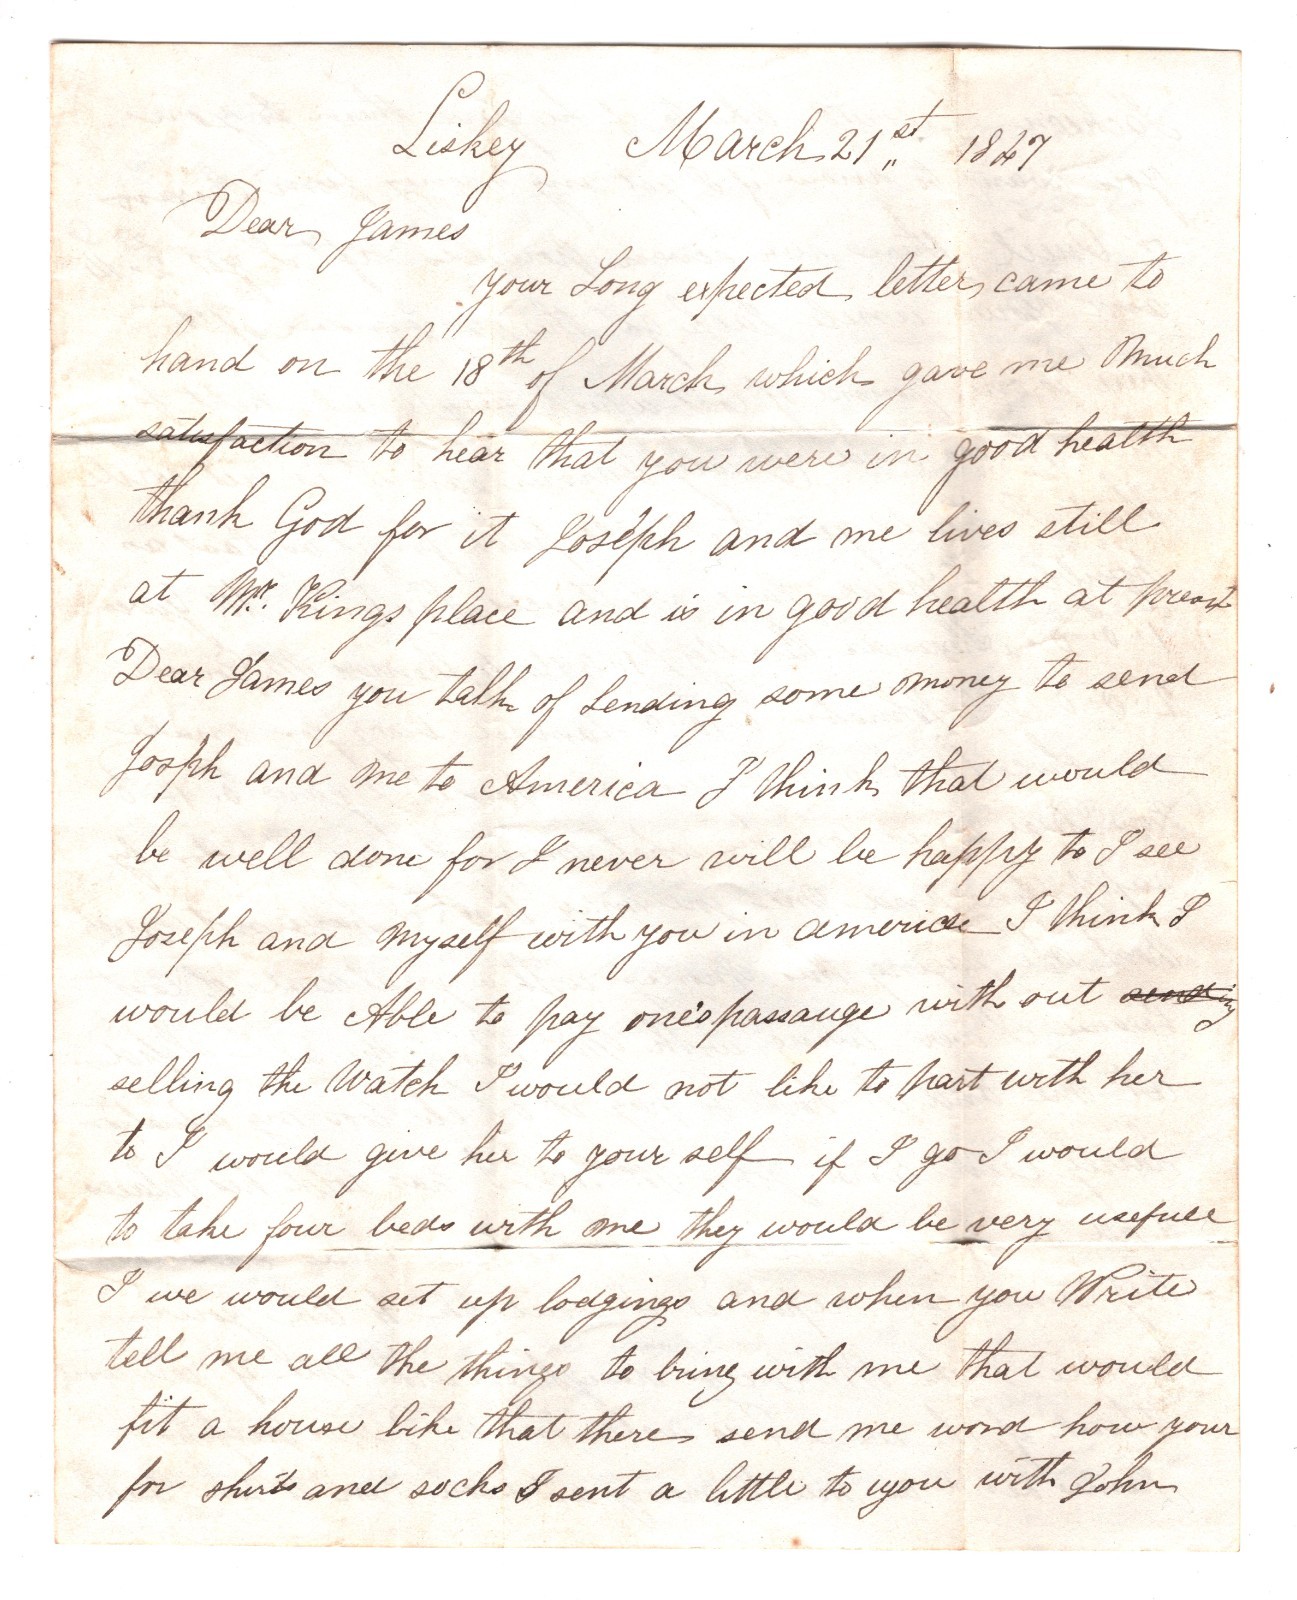 Liskey March 21st 1847
Dear James
your Long expected letter came to
hand on the 18th of March which gave me Much
satisfaction to hear that you were in good health
thank God for it Joseph and me lives still
at Mr. Kings place and is in good health at
Dear James you talk of Sending some money to send
Josph and me to America I think that would
be well done for I never will be happy to I see
Joseph and Myself with you in america I think I
would be Able to pay one's passauge with out sending
selling the Watch I would not like to part with her
to I would give her to your self if I go I would
to take four beds with me they would be very usefull
I we would set up lodgings and when you Write
tell me all the things to bring with me that would
fit a house like that there send me word how your
for shirts and socks I sent a little to you with John